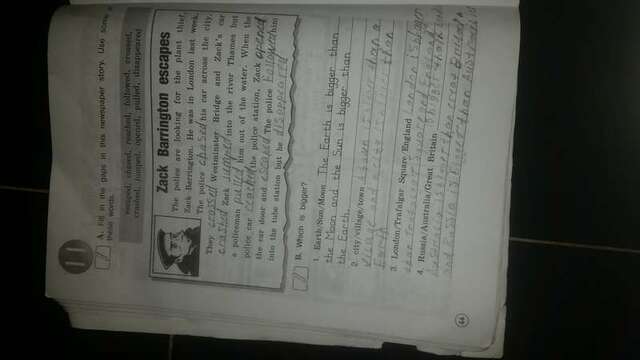 11
A. Fill in the gaps in this newspaper story. Use some
these words.
escaped, chased, reached, followed, crossed,
crashed, jumped, opened, pulled, disappeared
Zack Barrington escapes
The police are looking for the plant thief,
Zack Barrington. He was in London last week.
The police chased his car across the city.
They crossed Westminster Bridge and Zack's car
crashed Zack jumped into the river Thames but
a policeman pulled him out of the water. When the
police car reached the police station, Zack opened
the car door and escaped The police followed him
into the tube station but he disappeared
B. Which is bigger?
1. Earth/Sun/Moon The Earth is bigger than
the Moon and the Sun is bigger than
the Earth.
2. city/village/town a town is bigger than a
village and a city is bigger than
3. London/Trafalgar Square/England London is bigger
than Trafalgar Square and England
4. Russia/Australia/Great Britain is bigger than
Australia is bigger than Great Britain
and Russia is bigger than Australia
44